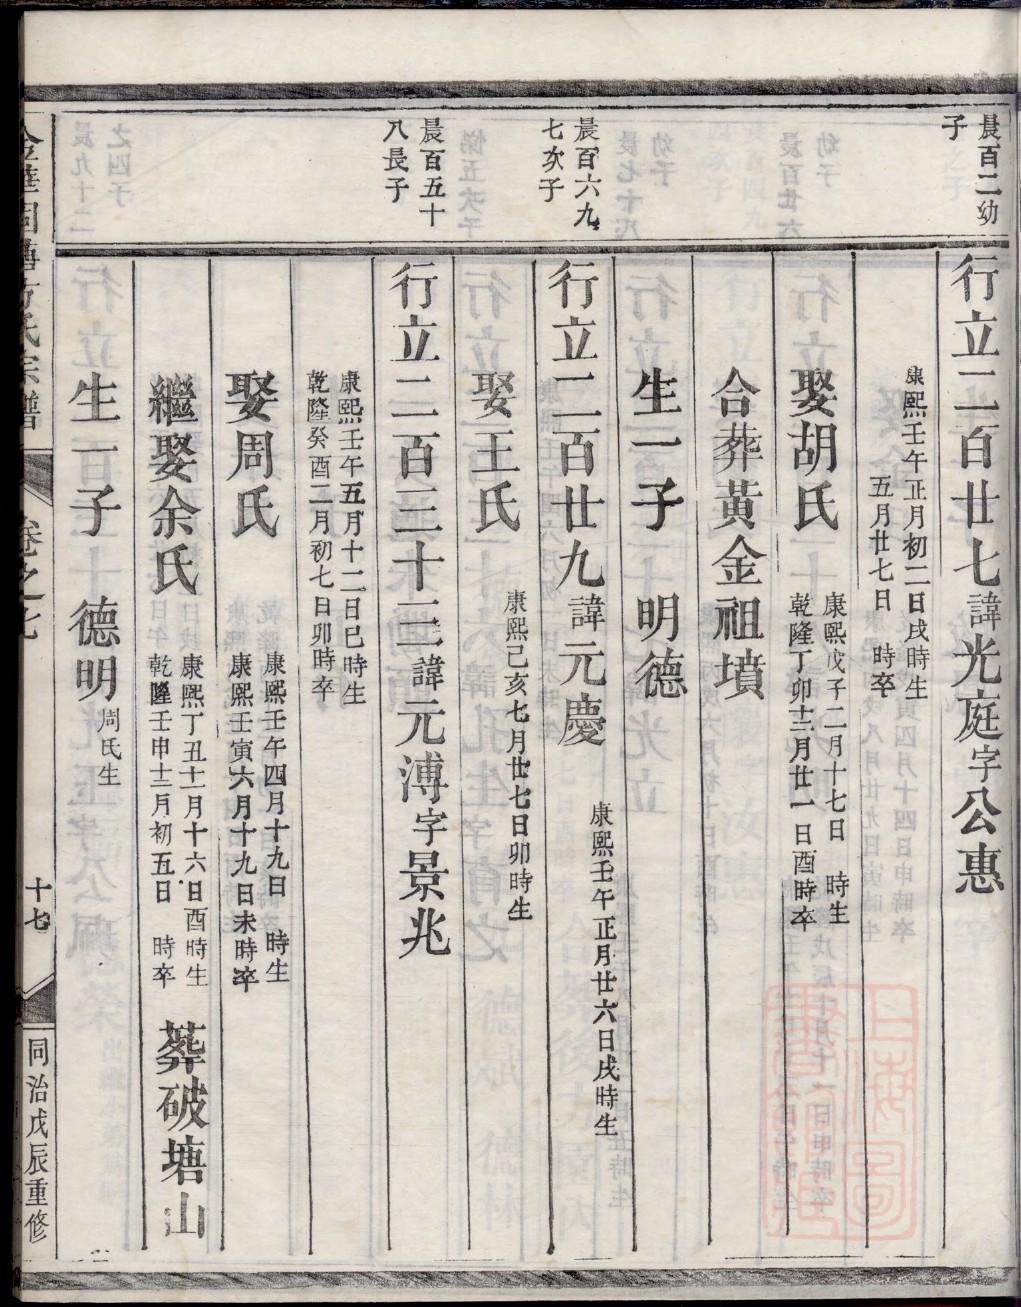 晨百二幼
子
行立二百廿七諱光庭字公惠
康熙壬午正月初二日戌時生
五月廿七日 時卒
娶胡氏
康熙戊子二月十七日 時生
乾隆丁卯十二月廿一日酉時卒
合葬黃金祖墳
生一子 明德
晨百六九
七次子
行立二百廿九諱元慶
康熙壬午正月廿六日戌時生
娶王氏
康熙己亥七月廿七日卯時生
晨百五十
八長子
行立二百三十三諱元溥字景兆
康熙壬午五月十二日巳時生
乾隆癸酉二月初七日卯時卒
娶周氏
康熙壬午四月十九日 時生
康熙壬寅六月十九日未時卒
繼娶余氏
康熙丁丑十一月十六日酉時生
乾隆壬申十二月初五日 時卒
葬破塘山
生一子 德明周氏生
卷之七
十七
同治戊辰重修